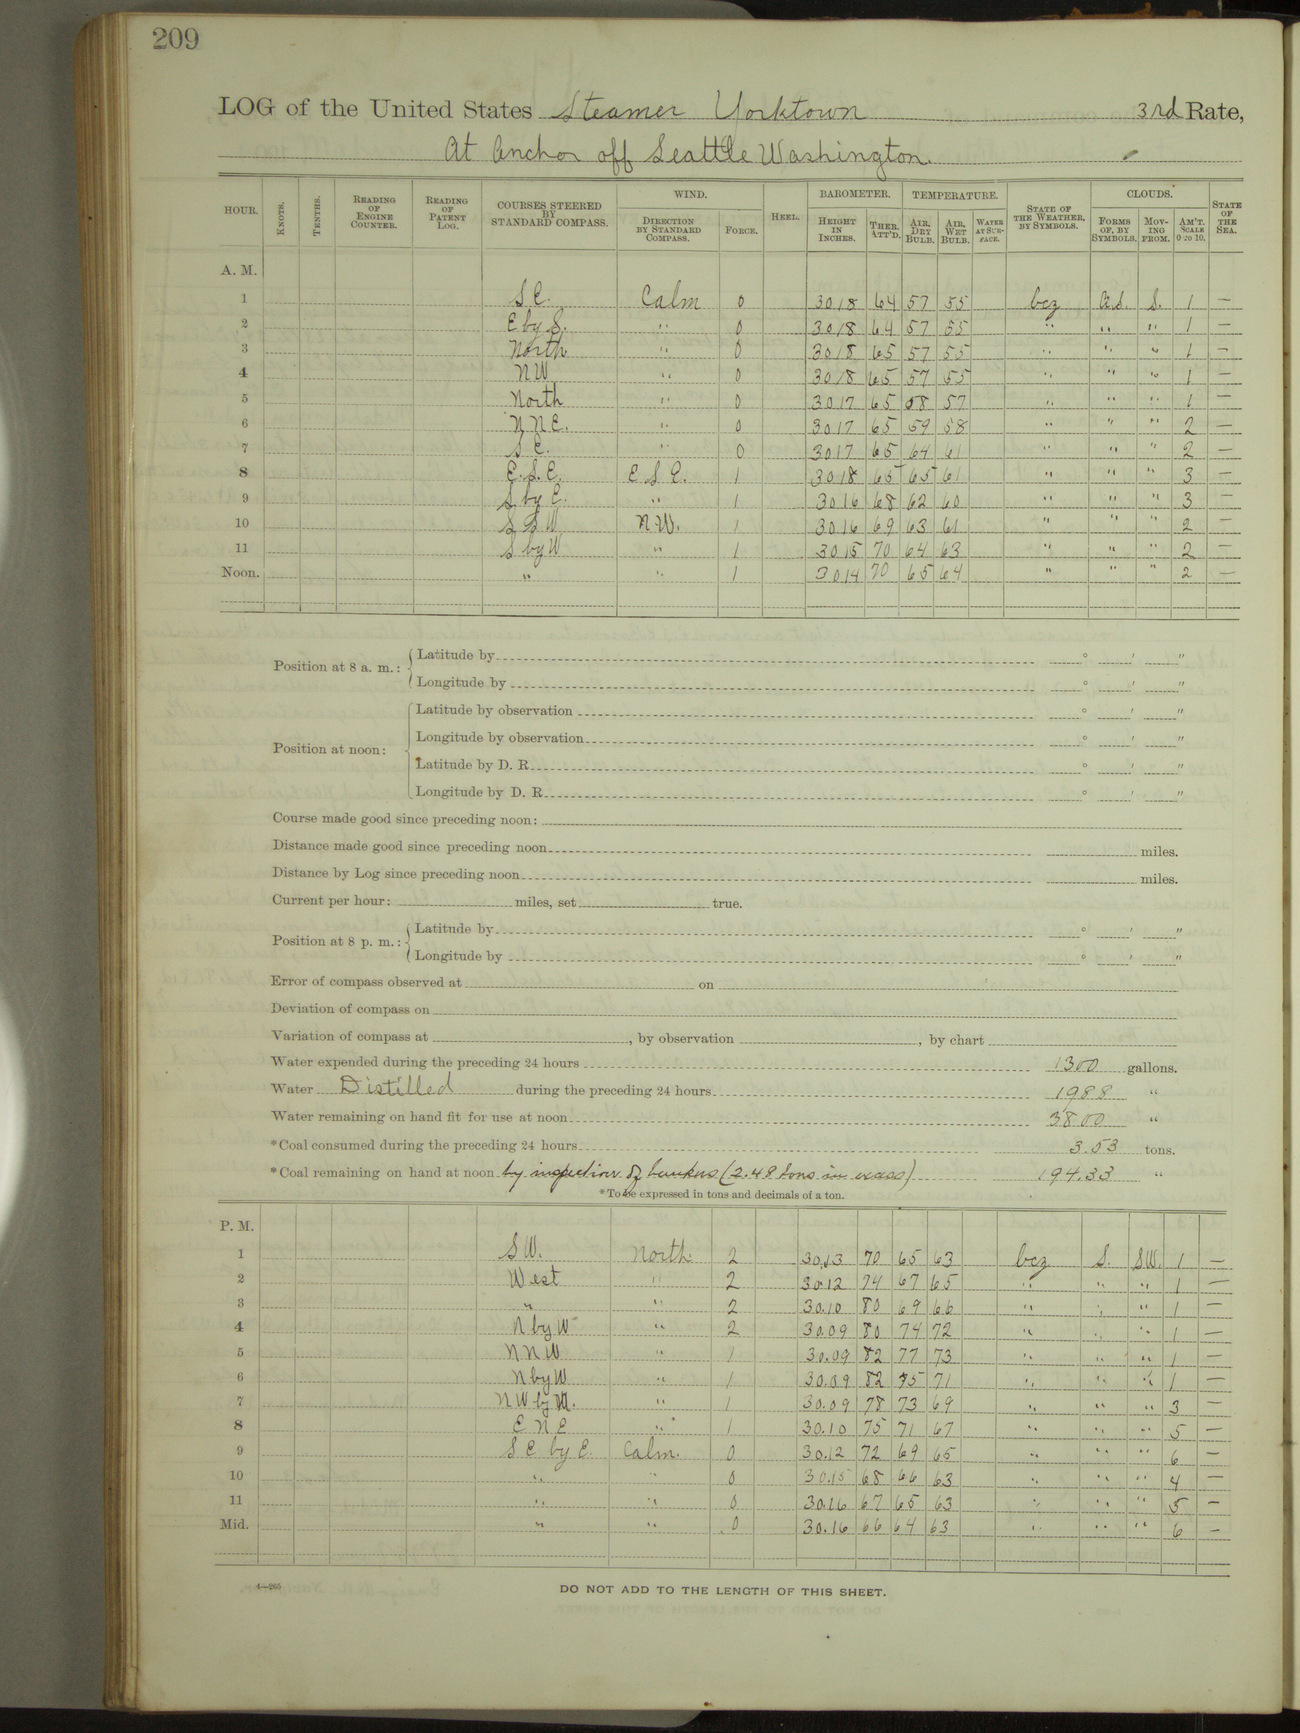 209
LOG of the United States Steamer Yorktown 3rd Rate,
At Anchor off Seattle Washington.
HOUR. KNOTS. TENTHS. READING OF ENGINE COUNTER. READING OF PATENT LOG. COURSES STEERED BY STANDARD COMPASS. WIND. DIRECTION BY STANDARD COMPASS. FORCE. HEEL. BAROMETER. HEIGHT IN INCHES. THER. ATT'D. TEMPERATURE. AIR, DRY BULB. AIR, WET BULB. WATER AT SURFACE. STATE OF THE WEATHER, BY SYMBOLS. CLOUDS. FORMS OF, BY SYMBOLS. MOVING FROM. AM'T. SCALE 0 TO 10. STATE OF THE SEA.
A. M.
1 S E. Calm 0 30 18 64 57 55 bcz S. 1 —
2 E by S. " 0 30 18 64 57 55 " " " 1 —
3 North " 0 30 18 65 57 55 " " " 1 —
4 NW " 0 30 18 65 57 55 " " " 1 —
5 North " 0 30 17 65 58 57 " " " 1 —
6 N N E. " 0 30 17 65 59 58 " " " 2 —
7 S E. " 0 30 17 65 64 61 " " " 2 —
8 E. S. E. E S E. 1 30 18 65 65 61 " " " 3 —
9 S by E. " 1 30 16 68 62 60 " " " 3 —
10 S S W N W. 1 30 16 69 63 61 " " " 2 —
11 S by W " 1 30 15 70 64 63 " " " 2 —
Noon. " " 1 30 14 70 65 64 " " " 2 —
Position at 8 a. m.: Latitude by ° ' "
Longitude by ° ' "
Position at noon: Latitude by observation ° ' "
Longitude by observation ° ' "
Latitude by D. R. ° ' "
Longitude by D. R. ° ' "
Course made good since preceding noon:
Distance made good since preceding noon miles.
Distance by Log since preceding noon miles.
Current per hour: miles, set true.
Position at 8 p. m.: Latitude by ° ' "
Longitude by ° ' "
Error of compass observed at on
Deviation of compass on
Variation of compass at , by observation , by chart
Water expended during the preceding 24 hours 1300 gallons.
Water Distilled during the preceding 24 hours 1988 "
Water remaining on hand fit for use at noon 3800 "
*Coal consumed during the preceding 24 hours 3.53 tons.
*Coal remaining on hand at noon by inspection of bunkers (2.48 tons in excess) 194.33 "
*To be expressed in tons and decimals of a ton.
P. M.
1 S W. North 2 30.13 70 65 63 bcz S. SW. 1 —
2 West " 2 30.12 74 67 65 " " " 1 —
3 " " 2 30.10 80 69 66 " " " 1 —
4 N by W " 2 30.09 80 74 72 " " " 1 —
5 N N W " 1 30.09 82 77 73 " " " 1 —
6 N by W " 1 30.09 82 75 71 " " " 1 —
7 N W by W. " 1 30.09 78 73 69 " " " 3 —
8 E N E " 1 30.10 75 71 67 " " " 5 —
9 S E by E. Calm. 0 30.12 72 69 65 " " " 6 —
10 " " 0 30.15 68 66 63 " " " 4 —
11 " " 0 30.16 67 65 63 " " " 5 —
Mid. " " 0 30.16 66 64 63 " " " 6 —
4—265
DO NOT ADD TO THE LENGTH OF THIS SHEET.